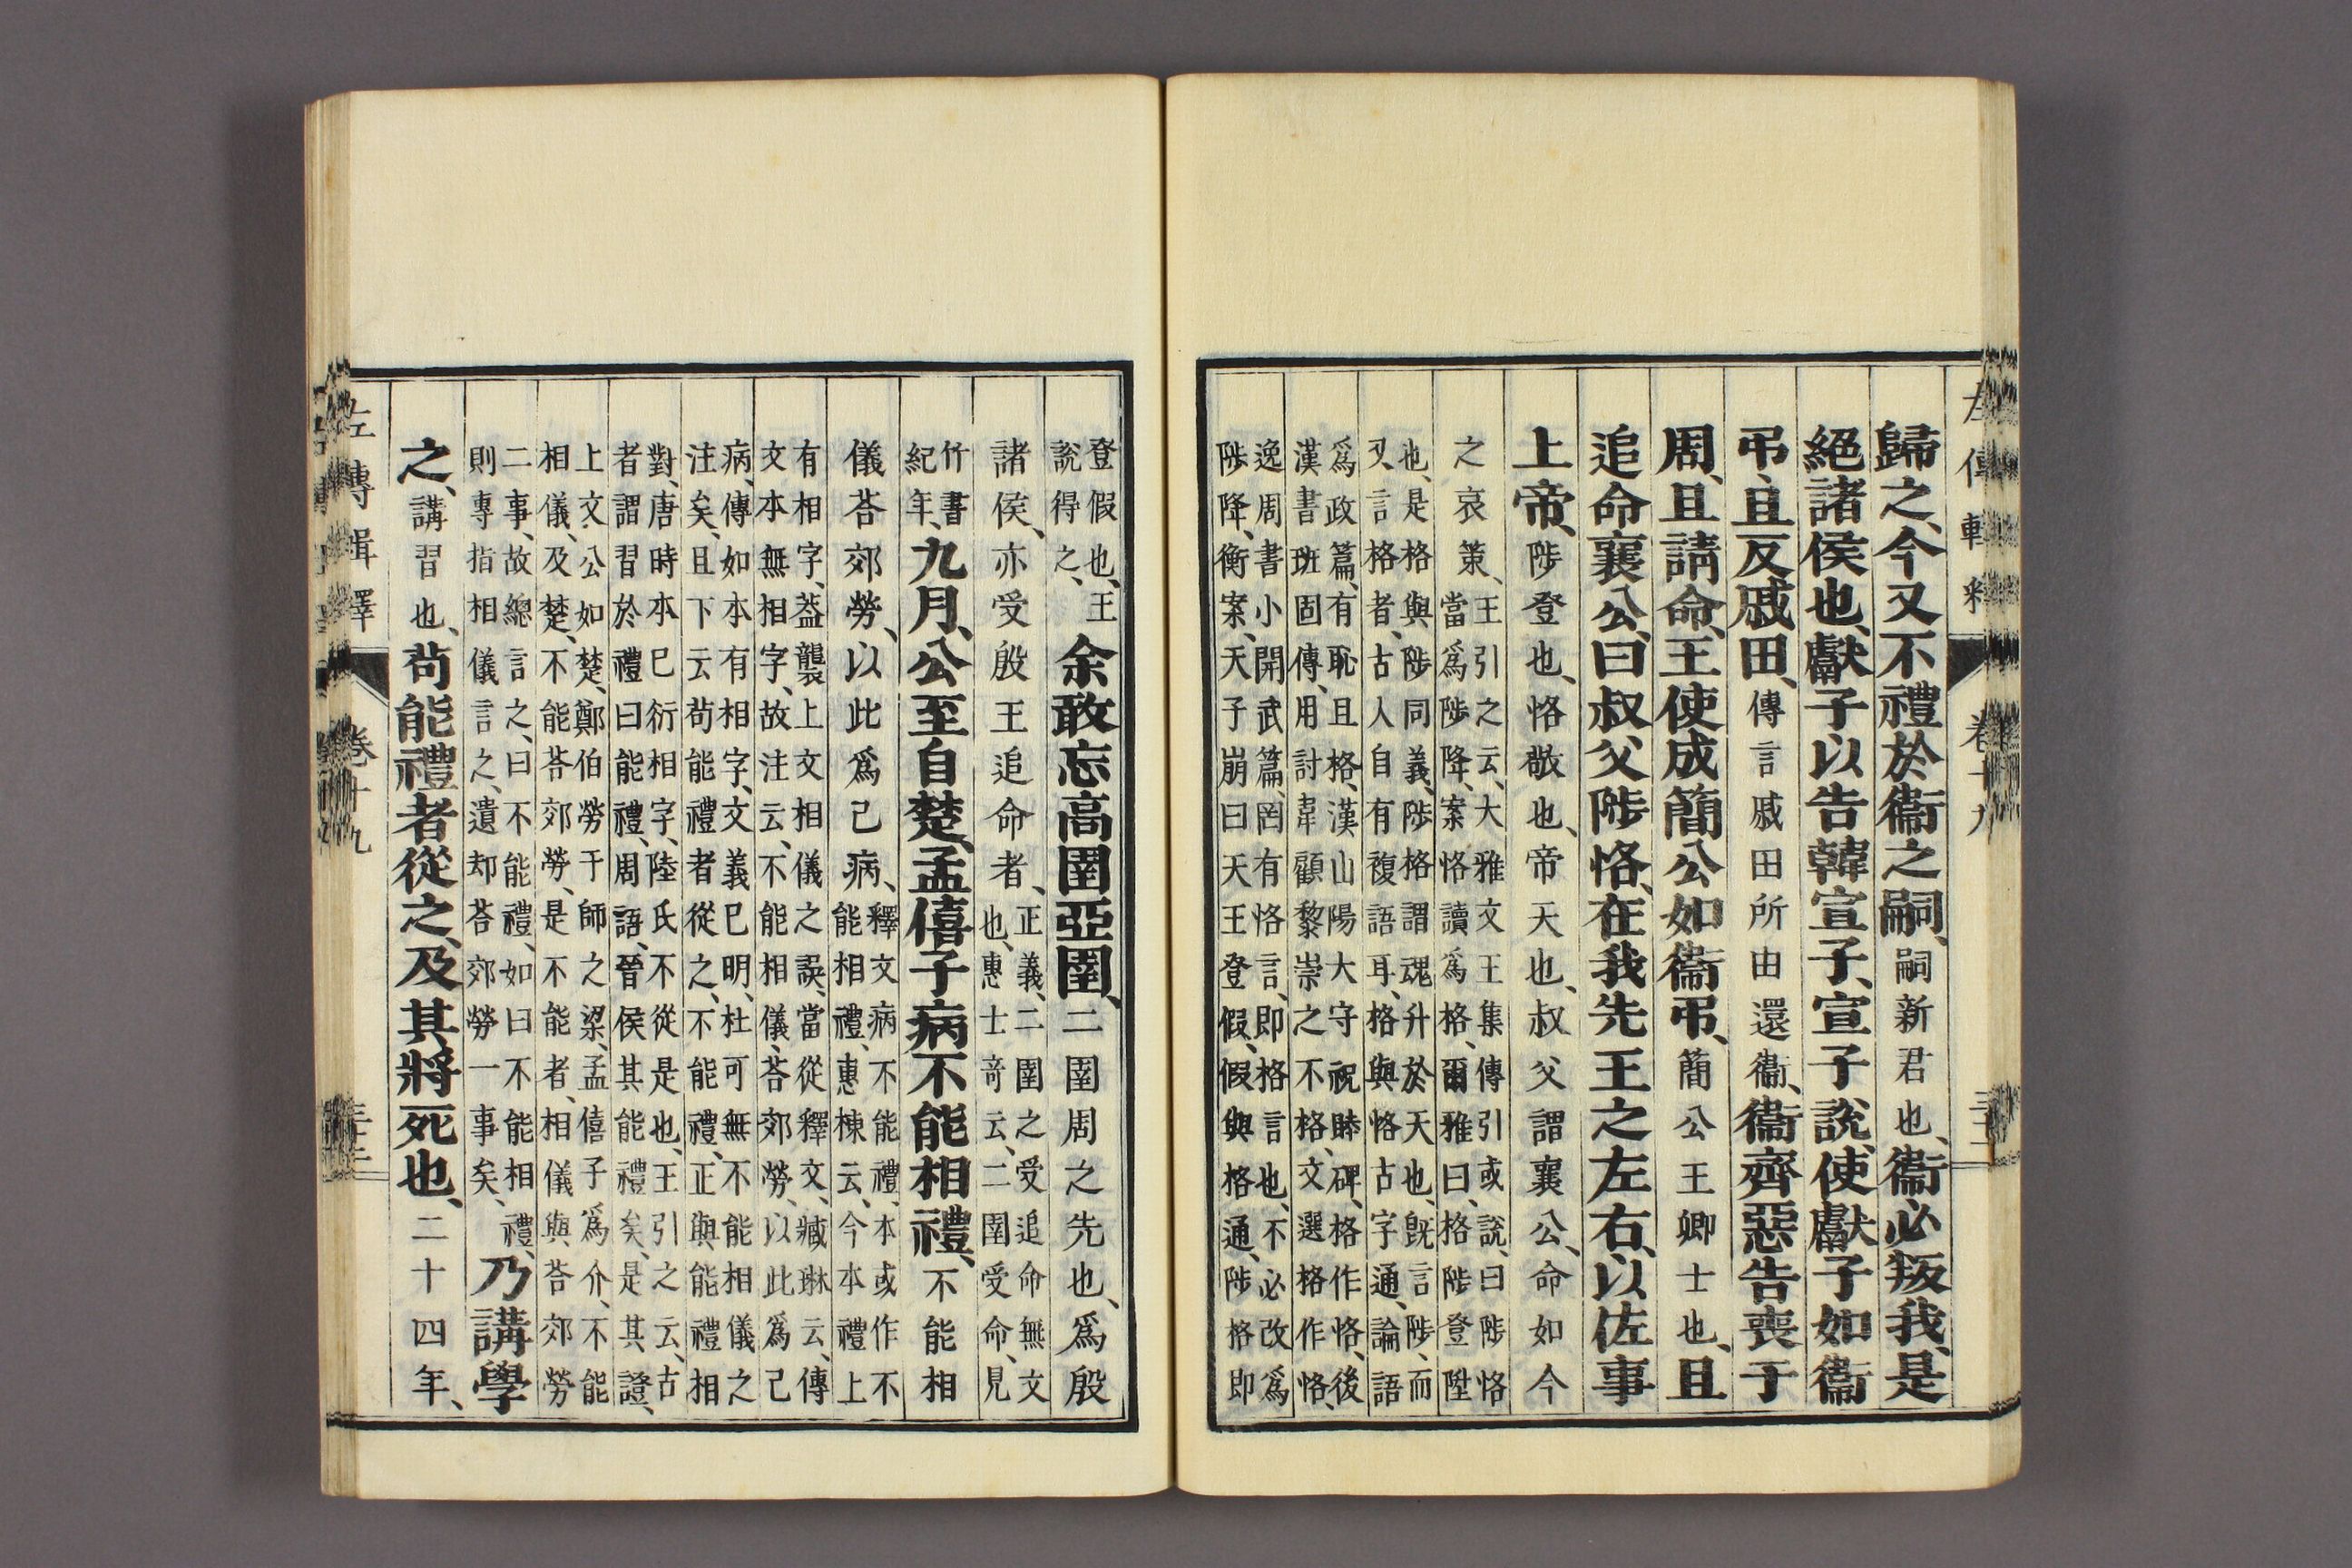 左傳輯釋 卷十九
歸之、今又不禮於衞之嗣、嗣新君也、衞必叛我、是
絕諸侯也、獻子以告韓宣子、宣子說、使獻子如衞
弔、且反戚田、傳言戚田所由還衞、衞齊惡告喪于
周、且請命、王使成簡公如衞弔、簡公王卿士也、且
追命襄公、曰叔父陟恪、在我先王之左右、以佐事
上帝、陟登也、恪敬也、帝天也、叔父謂襄公、命如今
之哀策、王引之云、大雅文王集傳引或說、曰陟恪
當爲陟降、案恪讀爲格、爾雅曰、格陟登陞
也、是格與陟同義、陟格謂魂升於天也、旣言陟、而
又言格者、古人自有複語耳、格與恪古字通、論語
爲政篇、有恥且格、漢山陽大守祝睦碑、格作恪、後
漢書班固傳、用討韋顧黎崇之不格、文選格作恪、
逸周書小開武篇、罔有恪言、即格言也、不必改爲
陟降、衡案、天子崩曰天王登假、假與格通、陟格即
登假也、王
說得之、余敢忘高圉亞圉、二圉周之先也、爲殷
諸侯、亦受殷王追命者、正義、二圉之受追命無文
也、惠士奇云、二圉受命、見
竹書
紀年、九月、公至自楚、孟僖子病不能相禮、不能相
儀荅郊勞、以此爲己病、釋文病不能禮、本或作不
能相禮、惠棟云、今本禮上
有相字、葢襲上文相儀之誤、當從釋文、臧琳云、傳
文本無相字、故注云、不能相儀、荅郊勞、以此爲己
病、傳如本有相字、文義已明、杜可無不能相儀之
注矣、且下云苟能禮者從之、不能禮、正與能禮相
對、唐時本已衍相字、陸氏不從是也、王引之云、古
者謂習於禮曰能禮、周語、晉侯其能禮矣、是其證、
上文公如楚、鄭伯勞于師之梁、孟僖子爲介、不能
相儀、及楚、不能荅郊勞、是不能者、相儀與荅郊勞
二事、故總言之、曰不能禮、如曰不能相禮、
則專指相儀言之、遺却荅郊勞一事矣、乃講學
之、講習也、苟能禮者從之、及其將死也、二十四年、
左傳輯釋 卷十九